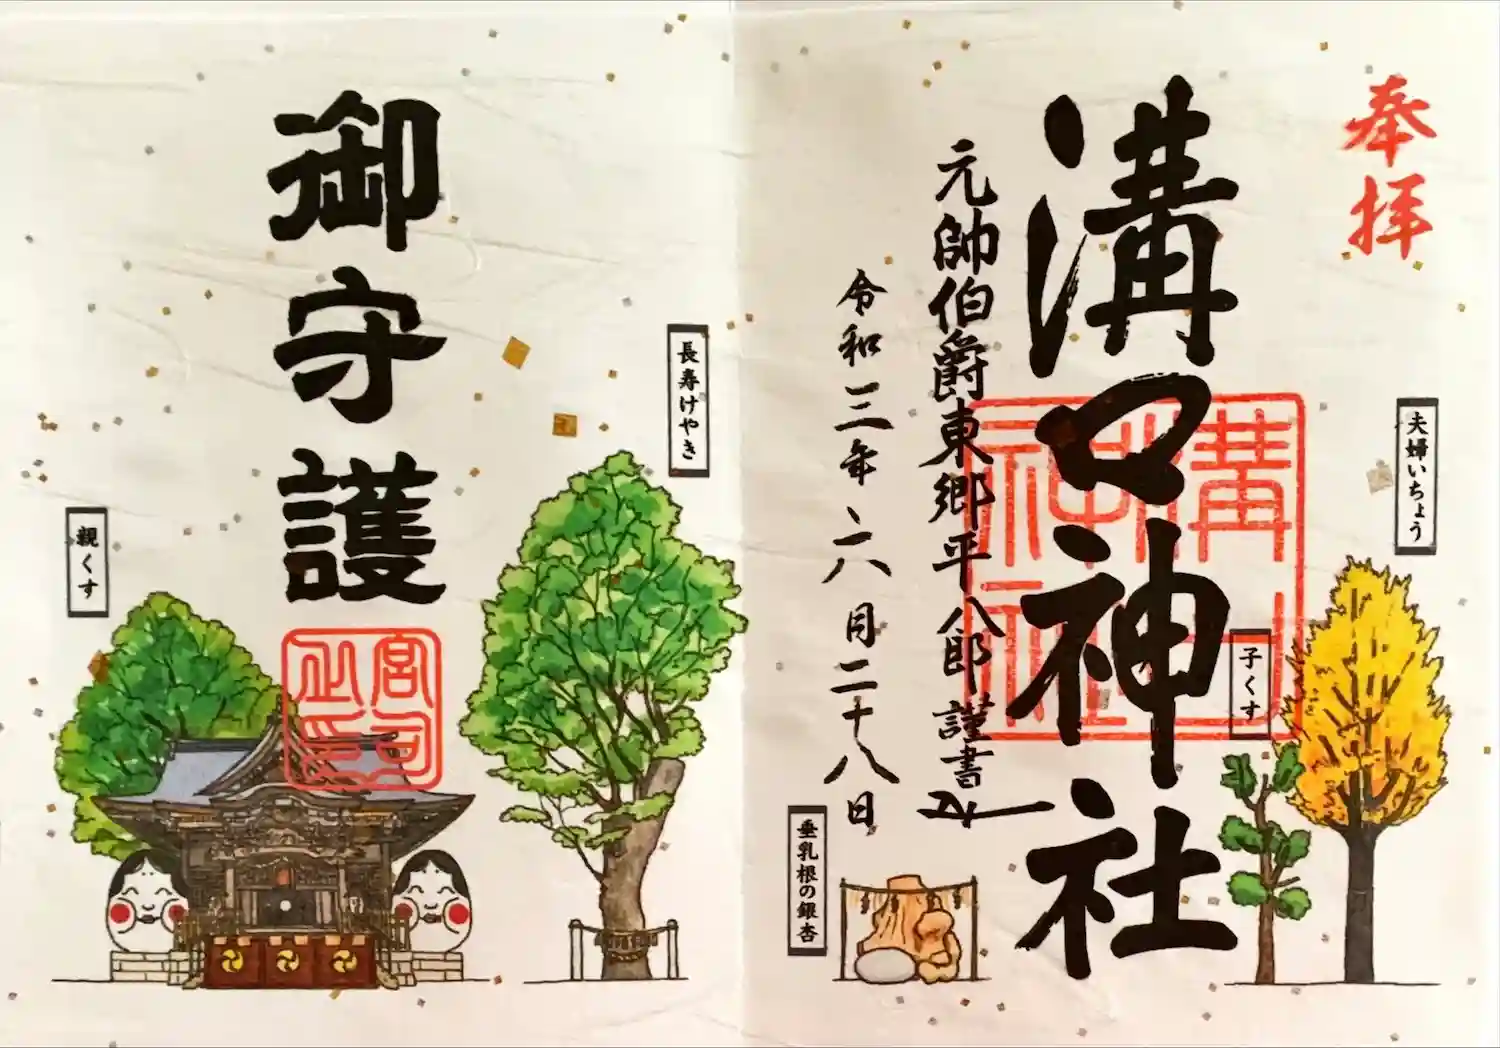 奉拝
溝口神社
元帥伯爵東郷平八郎謹書
令和三年六月二十八日
夫婦いちょう
子くす
垂乳根の銀杏
御守護
長寿けやき
親くす
宮司之印